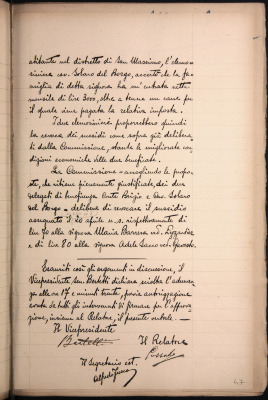 abitante nel distretto di San Massimo, l'elemo-
siniere cav. Solaro del Borgo, accertò che la fa-
miglia di detta signora ha un'entrata netta
mensile di lire 3000, oltre a tenere un cane per
il quale viene pagata la relativa imposta.
I due elemosinieri proporrebbero quindi
la revoca dei sussidi come sopra già delibera-
ti dalla Commissione, stante le migliorate con-
dizioni economiche delle due beneficate.
La Commissione accogliendo le propo-
ste, che ritiene pienamente giustificate, dei due
delegati di beneficenza Conte Brigio e Cav. Solaro
del Borgo delibera di revocare il sussidio
assegnato il 20 aprile u. s. rispettivamente di
lire 70 alla signora Maria Barrera
e di lire 80 alla signora Adele
Esauriti così gli argomenti in discussione, il
Vicepresidente Sen. Bertetti dichiara sciolta l'adunan-
za alle ore 17 e minuti trenta, previa autorizzazione
avuta da tutti gli intervenuti di firmare per l'appro-
vazione, insieme al Relatore, il presente verbale
Il Vicepresidente
Bertetti
Il Relatore
Il Segretario est.
47